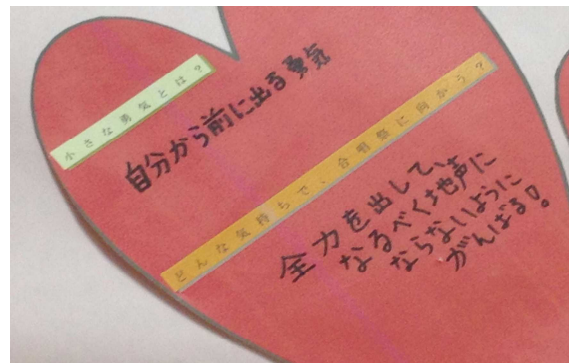 小さな勇気とは?
自分から前に出る勇気
どんな気持ちで、合唱祭に向かう?
全力を出して、
なるべく地声に
ならないように
がんばる!。